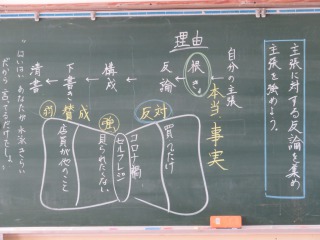 主張に対する反論を集め
主張を強めよう。
理由
自分の主張
根拠
本当 事実
反論
構成
下書き
清書
反対
強
賛成
弱
買うだけ
コロナ禍
セルフレジ
見られたくない
店員が他のこと
"はいはい あなたが
だから言ってるだけでしょ。